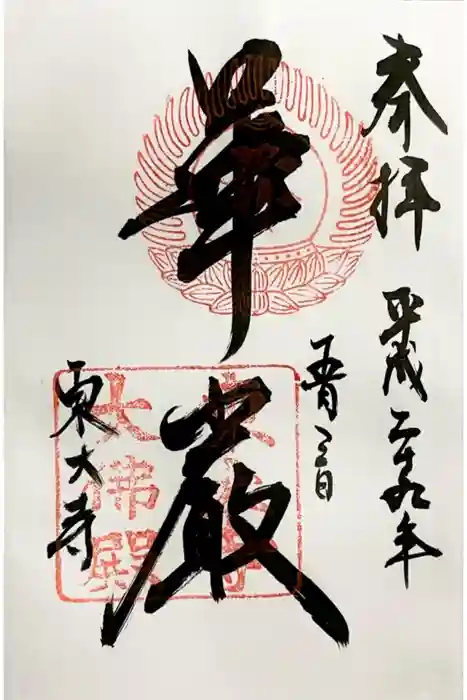 奉拝
平成二十九年
五月三日
華厳
東大寺
東大寺
大佛殿